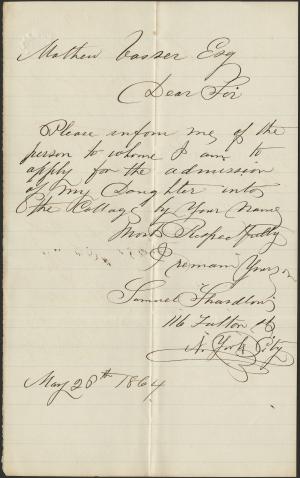 Mathew Vasser Esq
Dear Sir
Please infom me of the
person to whome I am to
apply for the admission
of My Daughter into
the Collage by Your Name
Most Respectfully
I remain Yours
Samuel
116 Fulton St
N. York City
May 28th 1864